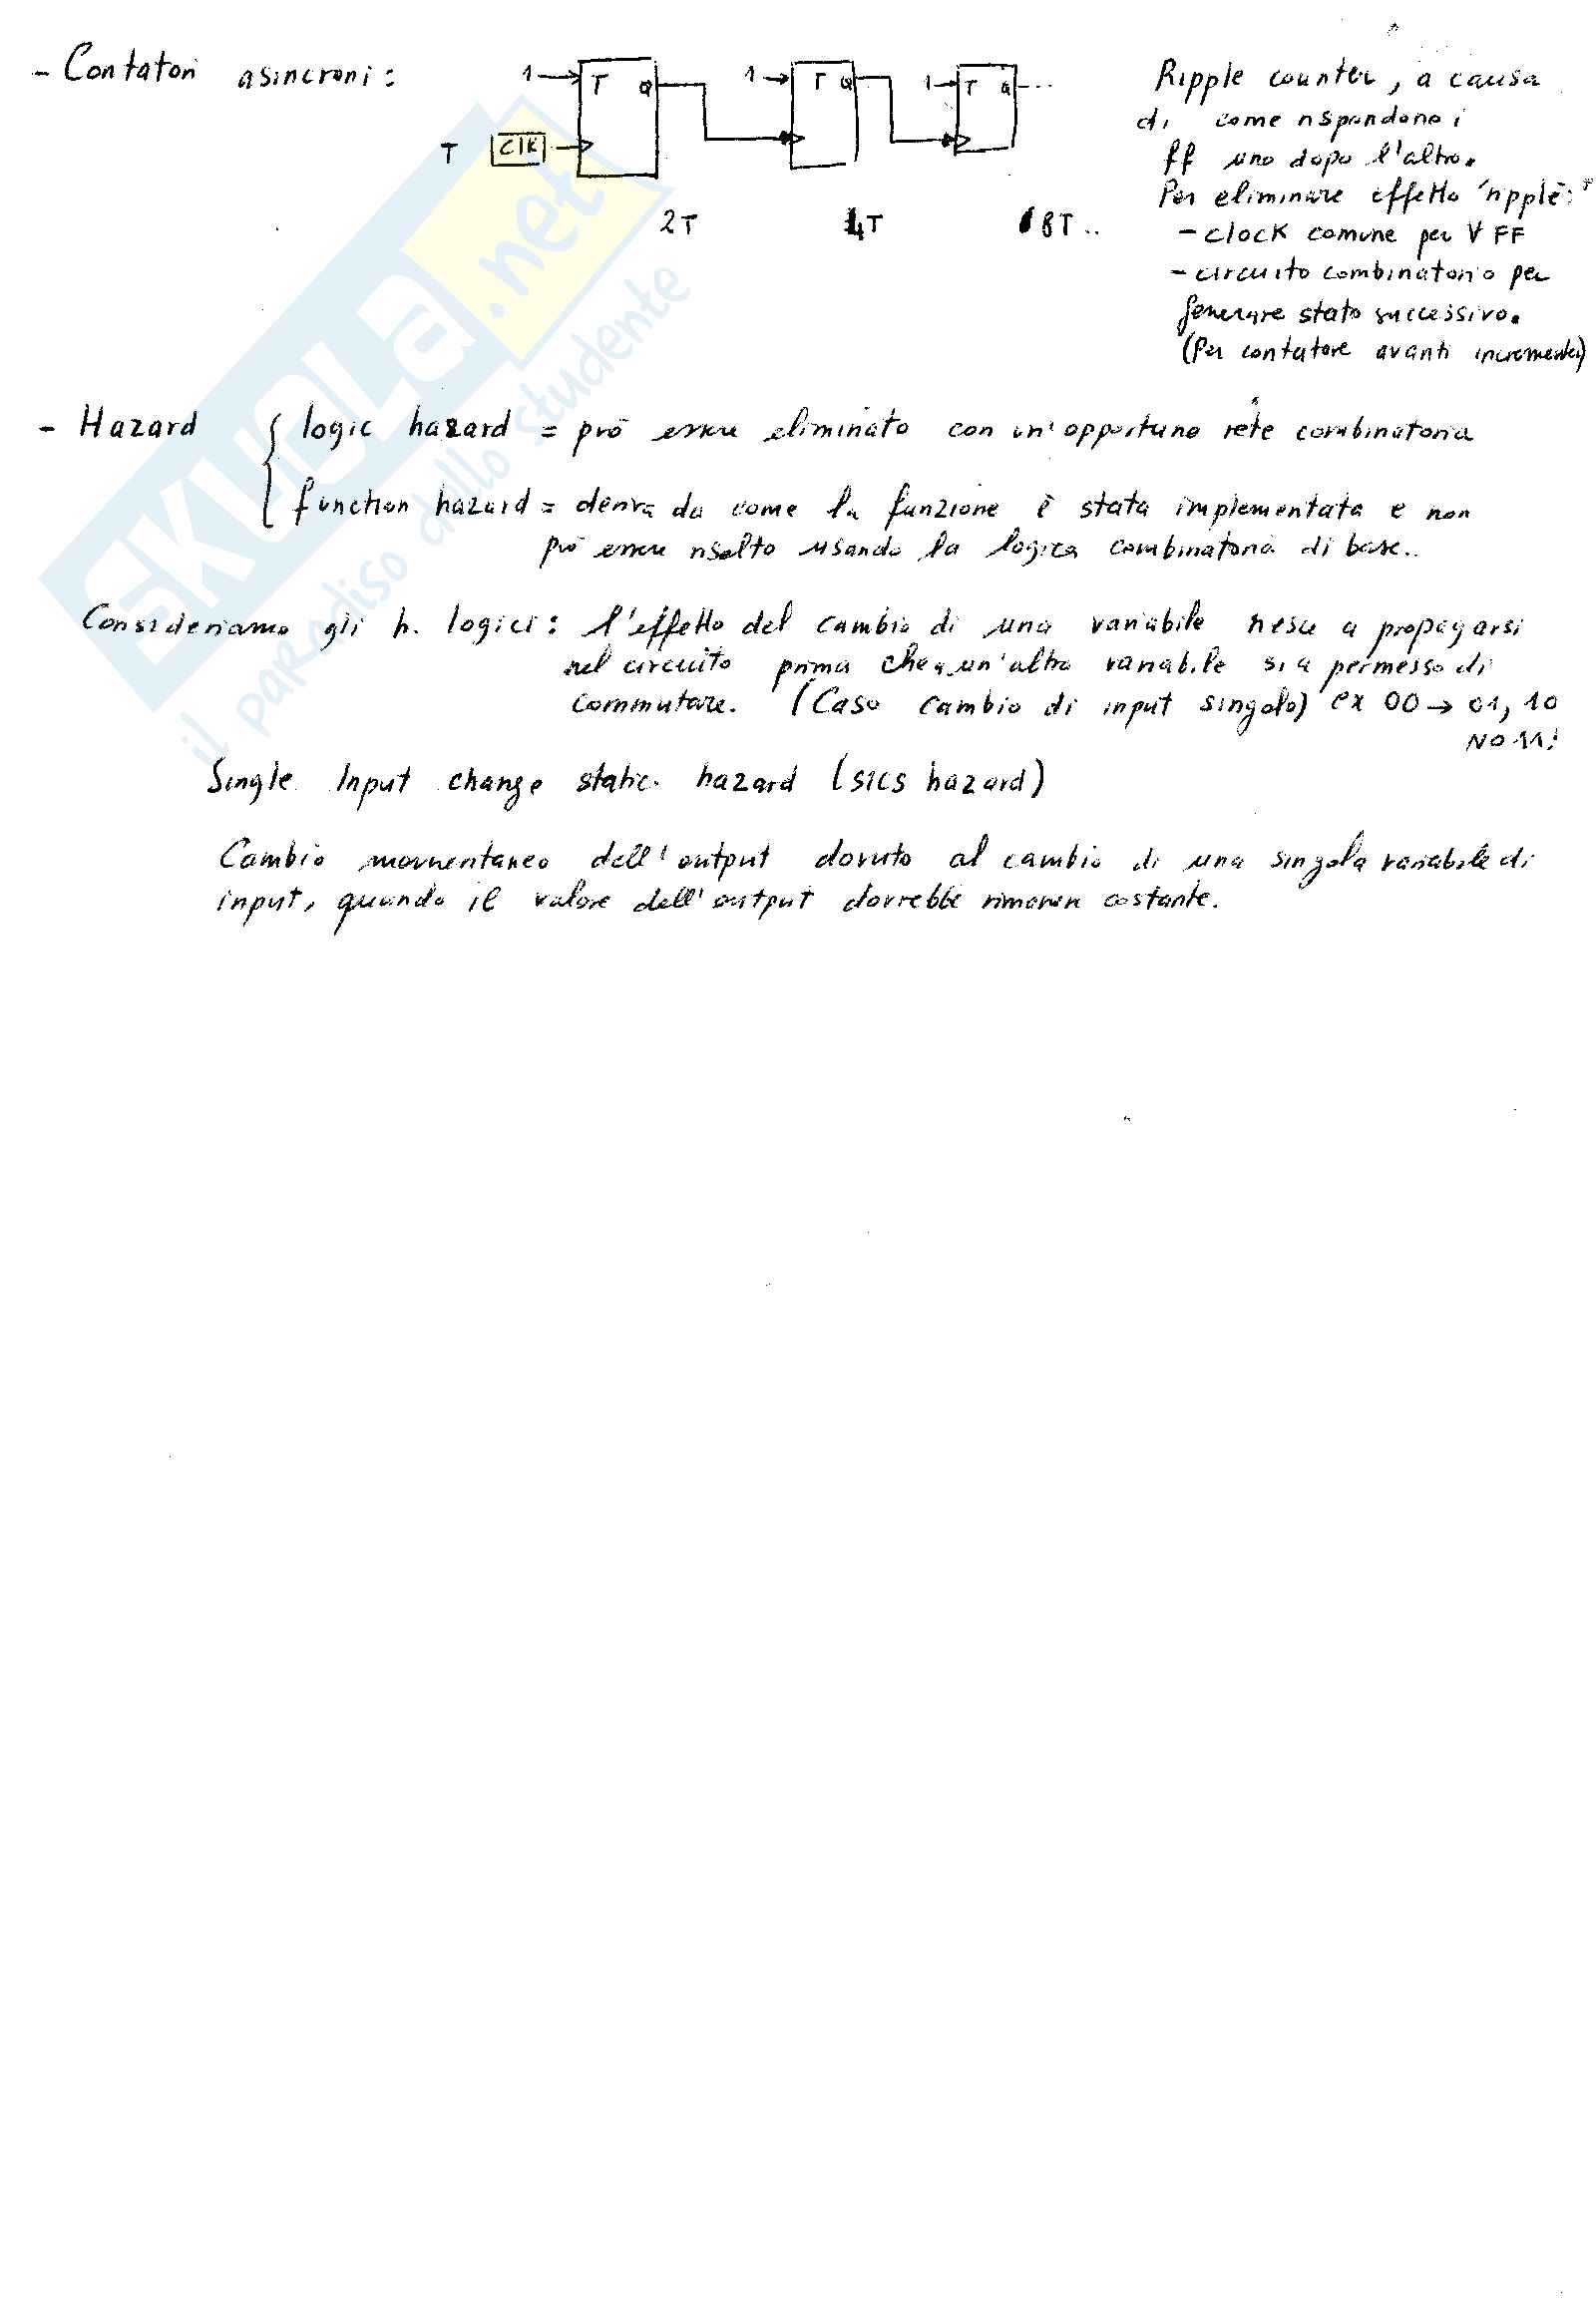 - Contatori asincroni:
1 T Q 1 T Q 1 T Q ...
T Clk
2T 4T 8T ..
Ripple counter, a causa
di come rispondono i
ff uno dopo l'altro.
Per eliminare effetto "ripple:"
- clock comune per ∀ FF
- circuito combinatorio per
generare stato successivo.
(Per contatore avanti incrementer)
- Hazard { logic hazard = può essere eliminato con un'opportuna rete combinatoria
function hazard = deriva da come la funzione è stata implementata e non
può essere risolto usando la logica combinatoria di base..
Consideriamo gli h. logici: l'effetto del cambio di una variabile riesce a propagarsi
nel circuito prima che a un'altra variabile sia permesso di
commutare. (Caso cambio di input singolo) ex 00 → 01, 10
NO 11!
Single Input change static hazard (SICS hazard)
Cambio momentaneo dell'output dovuto al cambio di una singola variabile di
input, quando il valore dell'output dovrebbe rimanere costante.
SKUOLA.net
il paradiso dello studente